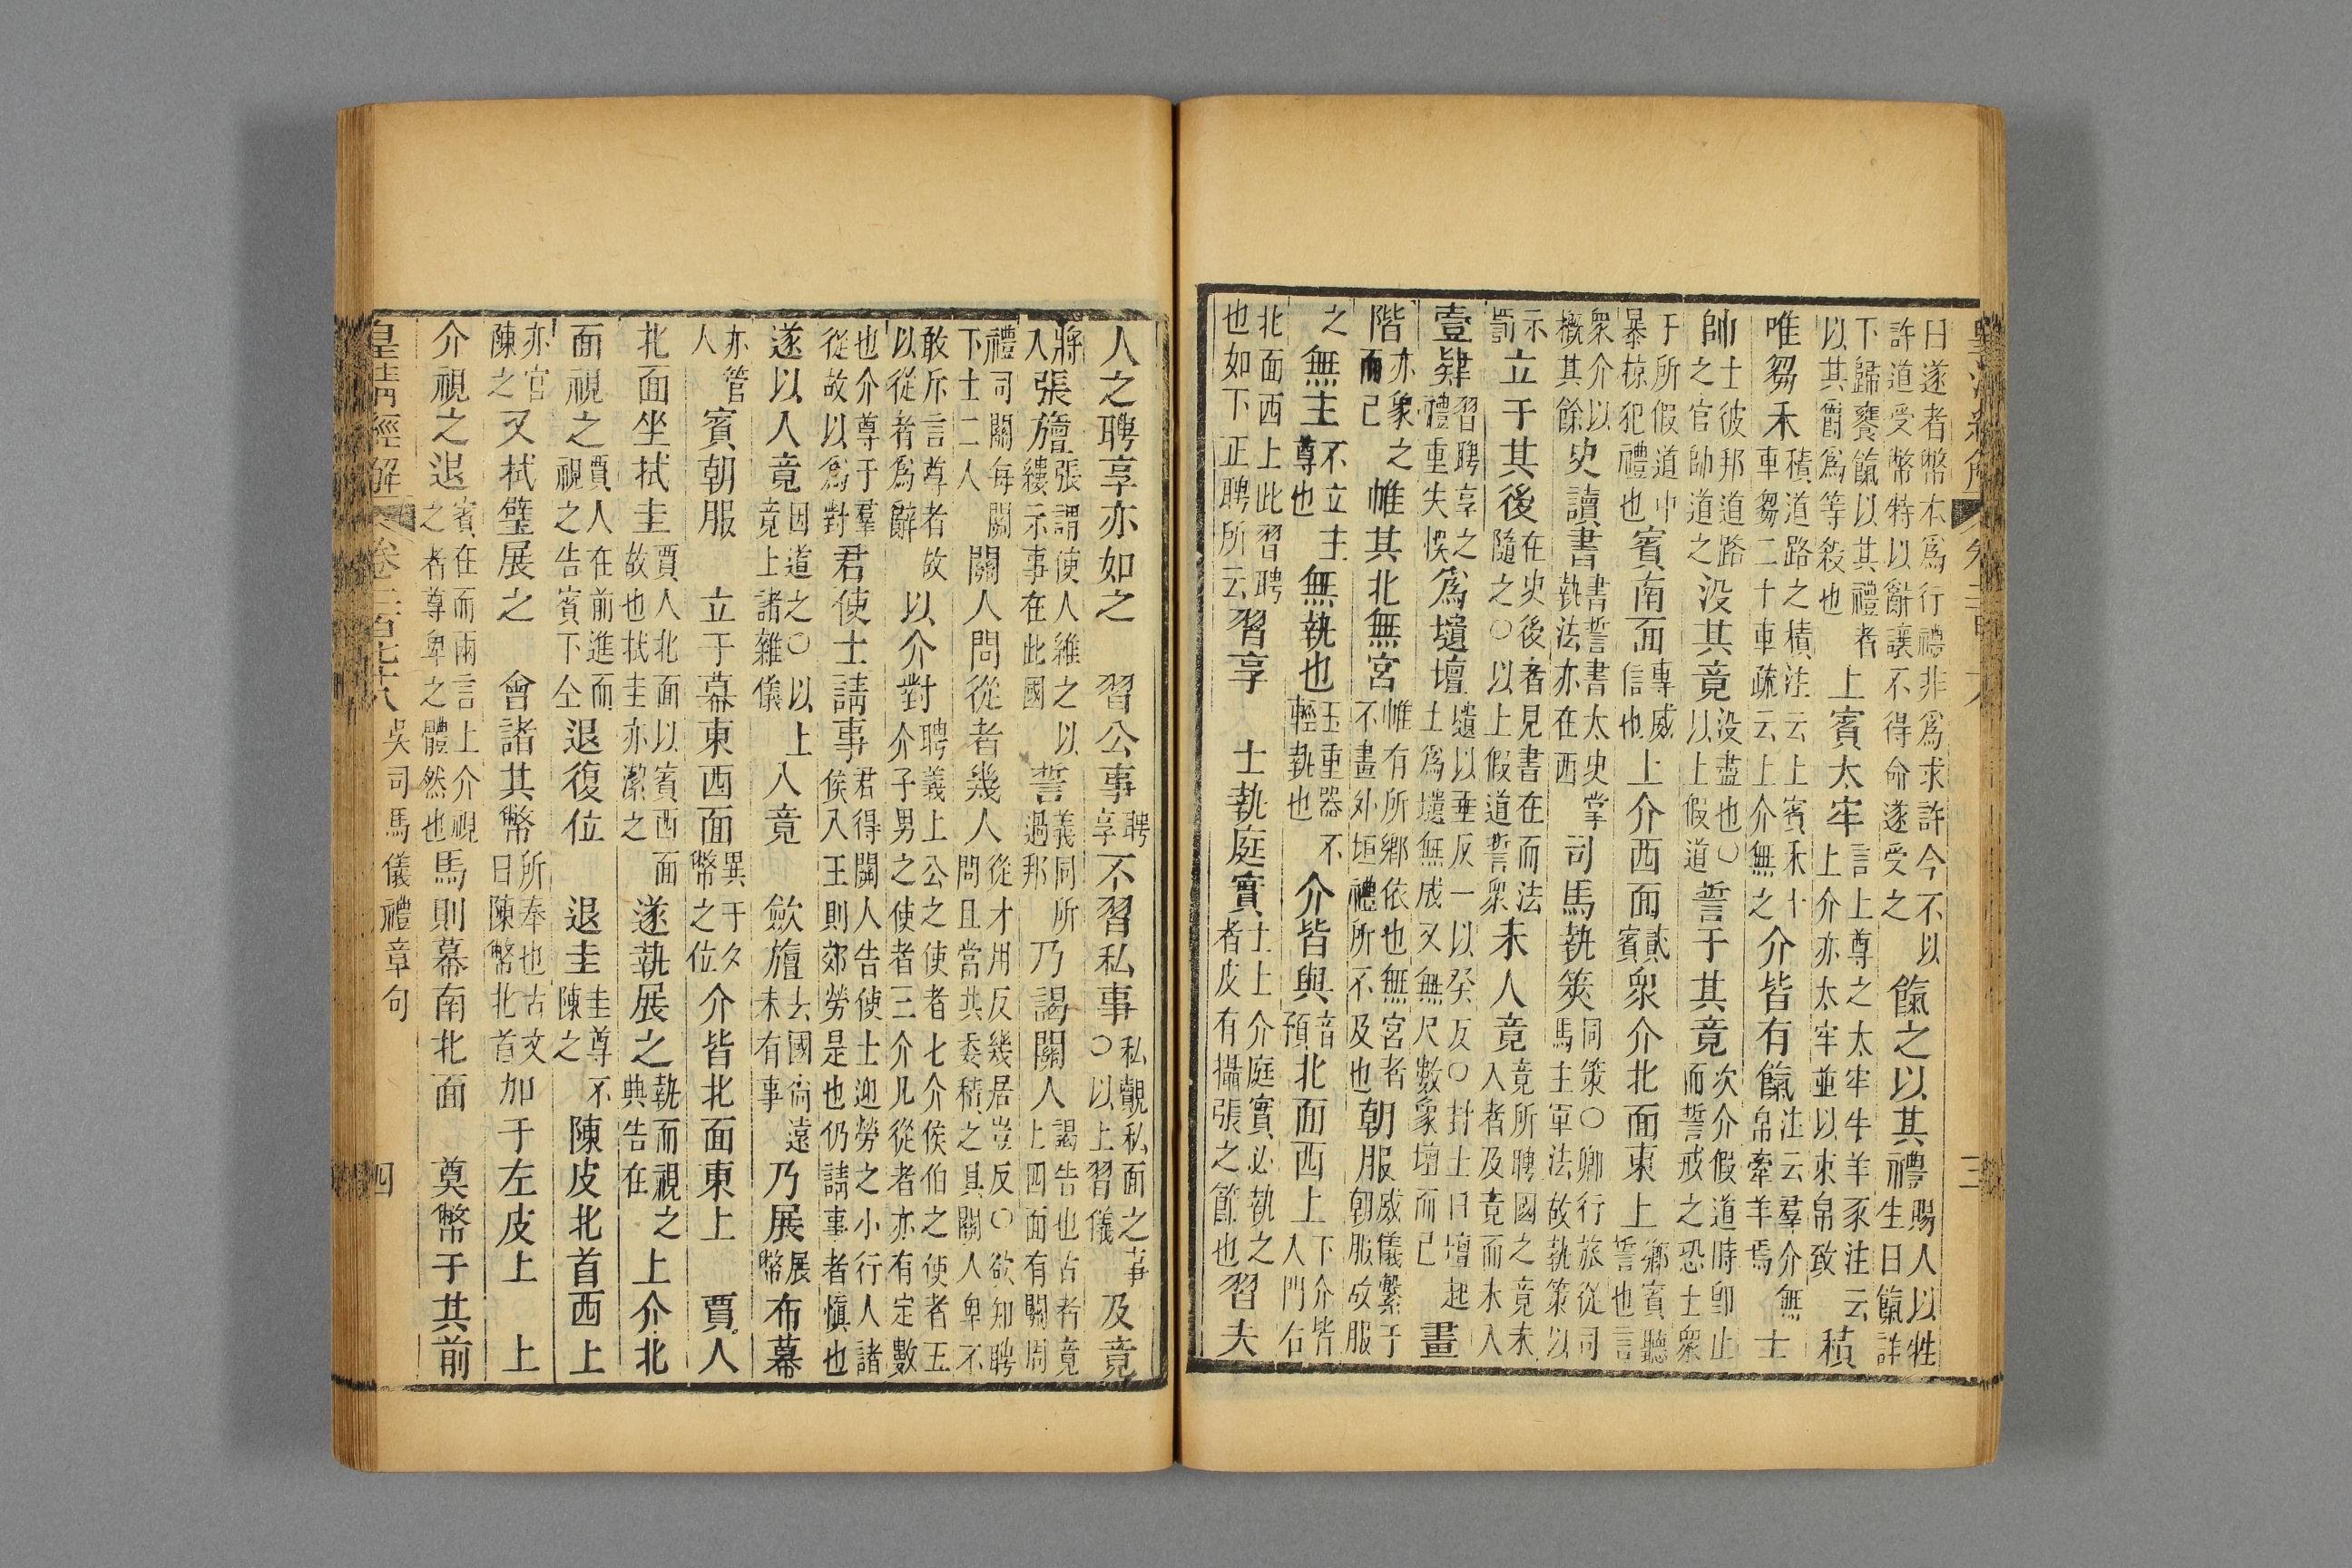 曰遂者幣本爲行禮非爲求許今不以許道受幣特以辭讓不得命遂受之餼之以其禮賜人以牲生曰餼詳
下歸饔餼以其禮者以其爵爲等殺也上賓太牢言上尊之太牢牛羊豕注云上介亦太牢並以束帛致積
唯芻禾積道路之積注云上賓禾十車芻二十車疏云上介無之介皆有餼注云羣介無帛牽羊焉士
帥士彼邦道路之官帥道之没其竟没盡也○以上假道誓于其竟次介假道時卽止而誓戒之恐士衆
于所假道中暴掠犯禮也賓南面專威信也上介西面貳賓衆介北面東上鄉賓聽誓也言
衆介以概其餘史讀書書誓書太史掌執法亦在西司馬執筴同策○卿行旅從司馬主軍法故執策以
示罰立于其後在史後者見書在而法隨之○以上假道誓衆未入竟竟所聘國之竟未入者及竟而未入
壹肄習聘享之禮重失悞爲壝壇壝以垂反一以癸反○封土曰壇起土爲壝無成又無尺數象壇而已畫
階亦象之而已帷其北無宮帷有所鄉依也無宮者不畫外垣禮所不及也朝服威儀繫于朝服故服
之無主不立主尊也無執也玉重器不輕執也介皆與音預北面西上下介皆入門右
北面西上此習聘也如下正聘所云習享士執庭實士士介庭實必執之者皮有攝張之節也習夫
人之聘享亦如之習公事聘享不習私事私觀私面之事○以上習儀及竟
將入張旜張謂使人維之以縷示事在此國誓義同所過邦乃謁關人謁告也古者竟上四面有關周
禮司關每關下士二人關人問從者幾人從才用反幾居豈反○欲知聘問且當共委積之具關人卑不
敢斥言尊者故以從者爲辭以介對聘義上公之使者七介侯伯之使者五介子男之使者三介凡從者亦有定數
也介尊于羣從故以爲對君使士請事君得關人告使士迎勞之小行人諸侯入王則郊勞是也仍請事者愼也
遂以入竟因道之○以上竟上諸雜儀入竟斂旜去國尚遠未有事乃展展幣布幕
亦管人賓朝服立于幕東西面異于夕幣之位介皆北面東上賈人
北面坐拭圭賈人北面以賓西面故也拭圭亦潔之遂執展之執而視之典告在上介北
面視之賈人在前進而視之告賓下仝退復位退圭圭尊不陳之陳皮北首西上
亦官陳之又拭璧展之會諸其幣所奉也古文曰陳幣北首加于左皮上上
介視之退賓在而兩言上介視之者尊卑之體然也馬則幕南北面奠幣于其前
皇清經解 卷二百七十八 吳司馬儀禮章句 四